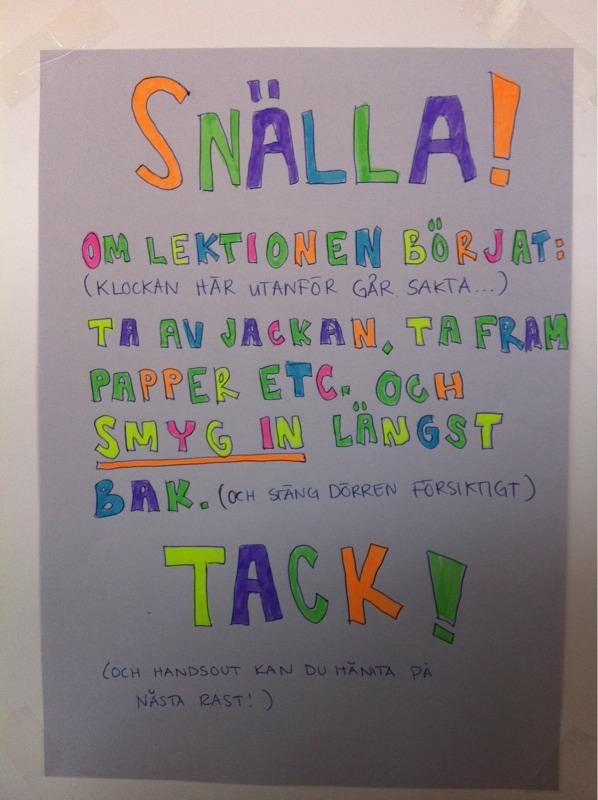 SNÄLLA!
OM LEKTIONEN BÖRJAT:
(KLOCKAN HÄR UTANFÖR GÅR SAKTA...)
TA AV JACKAN, TA FRAM
PAPPER ETC. OCH
SMYG IN LÄNGST
BAK. (OCH STÄNG DÖRREN FÖRSIKTIGT)
TACK!
(OCH HANDSOUT KAN DU HÄMTA PÅ
NÄSTA RAST!)